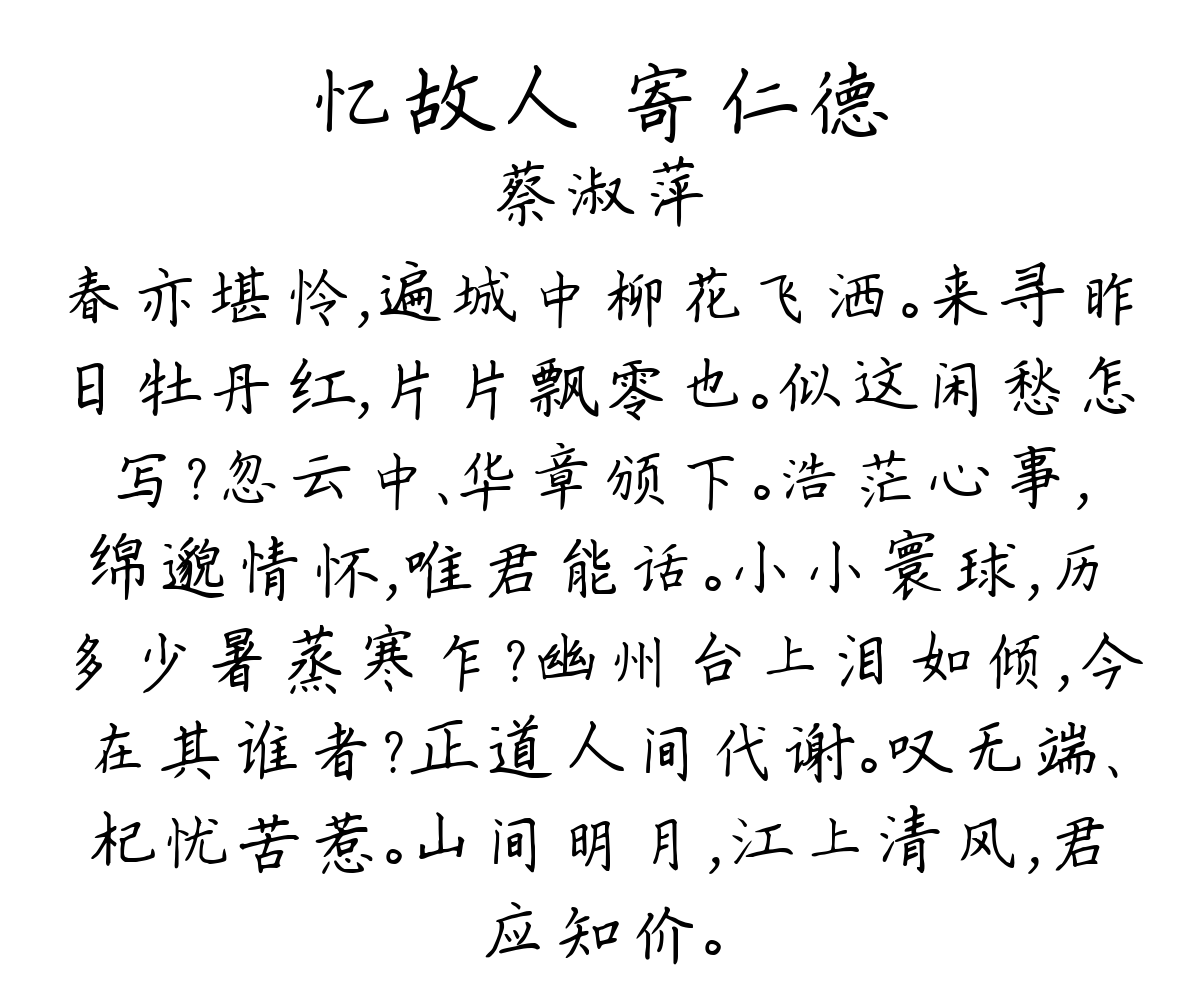 忆故人 寄仁德
蔡淑萍
春亦堪怜,遍城中柳花飞洒。来寻昨
日牡丹红,片片飘零也。似这闲愁怎
写?忽云中、华章颁下。浩茫心事,
绵邈情怀,唯君能话。小小寰球,历
多少暑蒸寒乍?幽州台上泪如倾,今
在其谁者?正道人间代谢。叹无端、
杞忧苦惹。山间明月,江上清风,君
应知价。